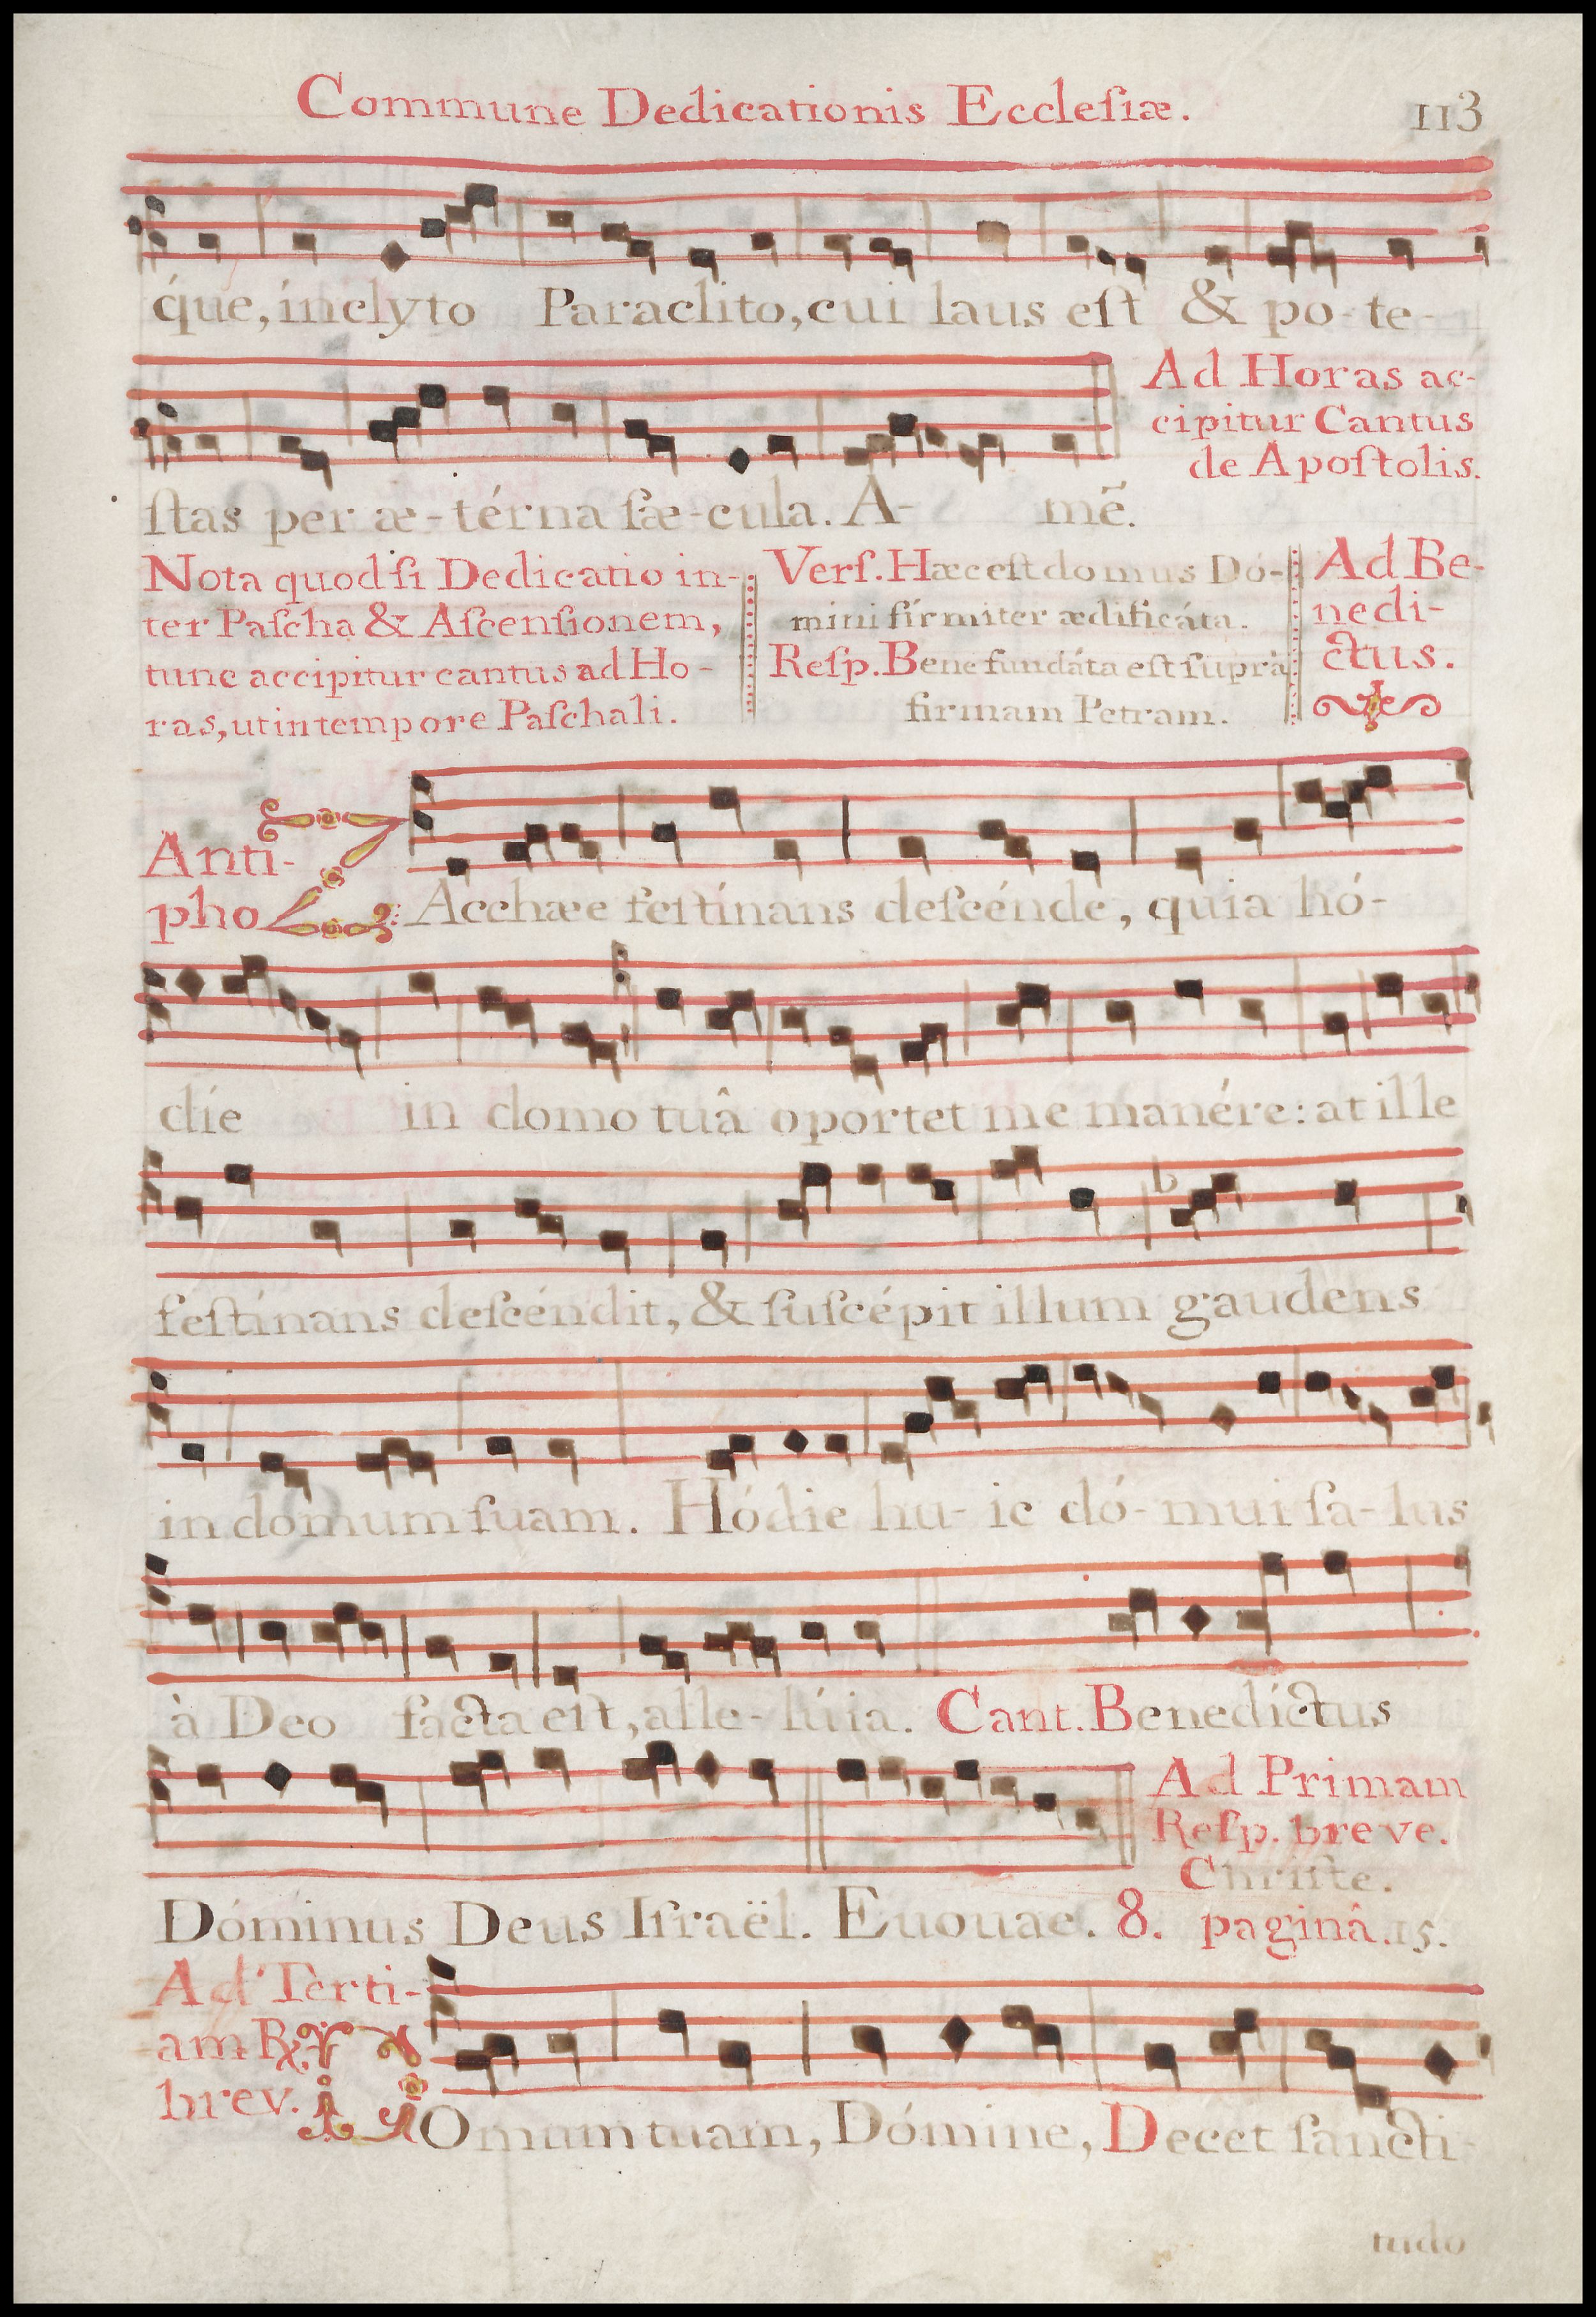 Commune Dedicationis Eccleſiæ. 113
q́ue, ínclyto Paraclito, cui laus eſt & po-te-
Ad Horas ac-
cipitur Cantus
de Apoſtolis.
ſtas per æ-térna ſæ-cula. A-mẽ.
Nota quod ſi Dedicatio in-
ter Paſcha & Aſcenſionem,
tunc accipitur cantus ad Ho-
ras, ut in tempore Paſchali.
Verſ. Hæc eſt domus Dó-
mini fírmiter ædificáta.
Reſp. Bene fundáta eſt ſuprà
firmam Petram.
Ad Be-
nedi-
ctus.
Anti-
pho
ZAcchæe feſtínans deſcénde, quia hó-
die in domo tuâ oportet me manére: at ille
feſtínans deſcéndit, & ſuſcépit illum gaudens
in domum ſuam. Hódie hu-ic dó-mui ſa-lus
à Deo facta eſt, alle-lúia. Cant. Benedíctus
Ad Primam
Reſp. breve.
Chriſte.
Dóminus Deus Iſraël. Euouae. 8. paginâ. 15.
Ad Terti-
am ℟.
brev.
DOmum tuam, Dómine, Decet ſancti-
tudo